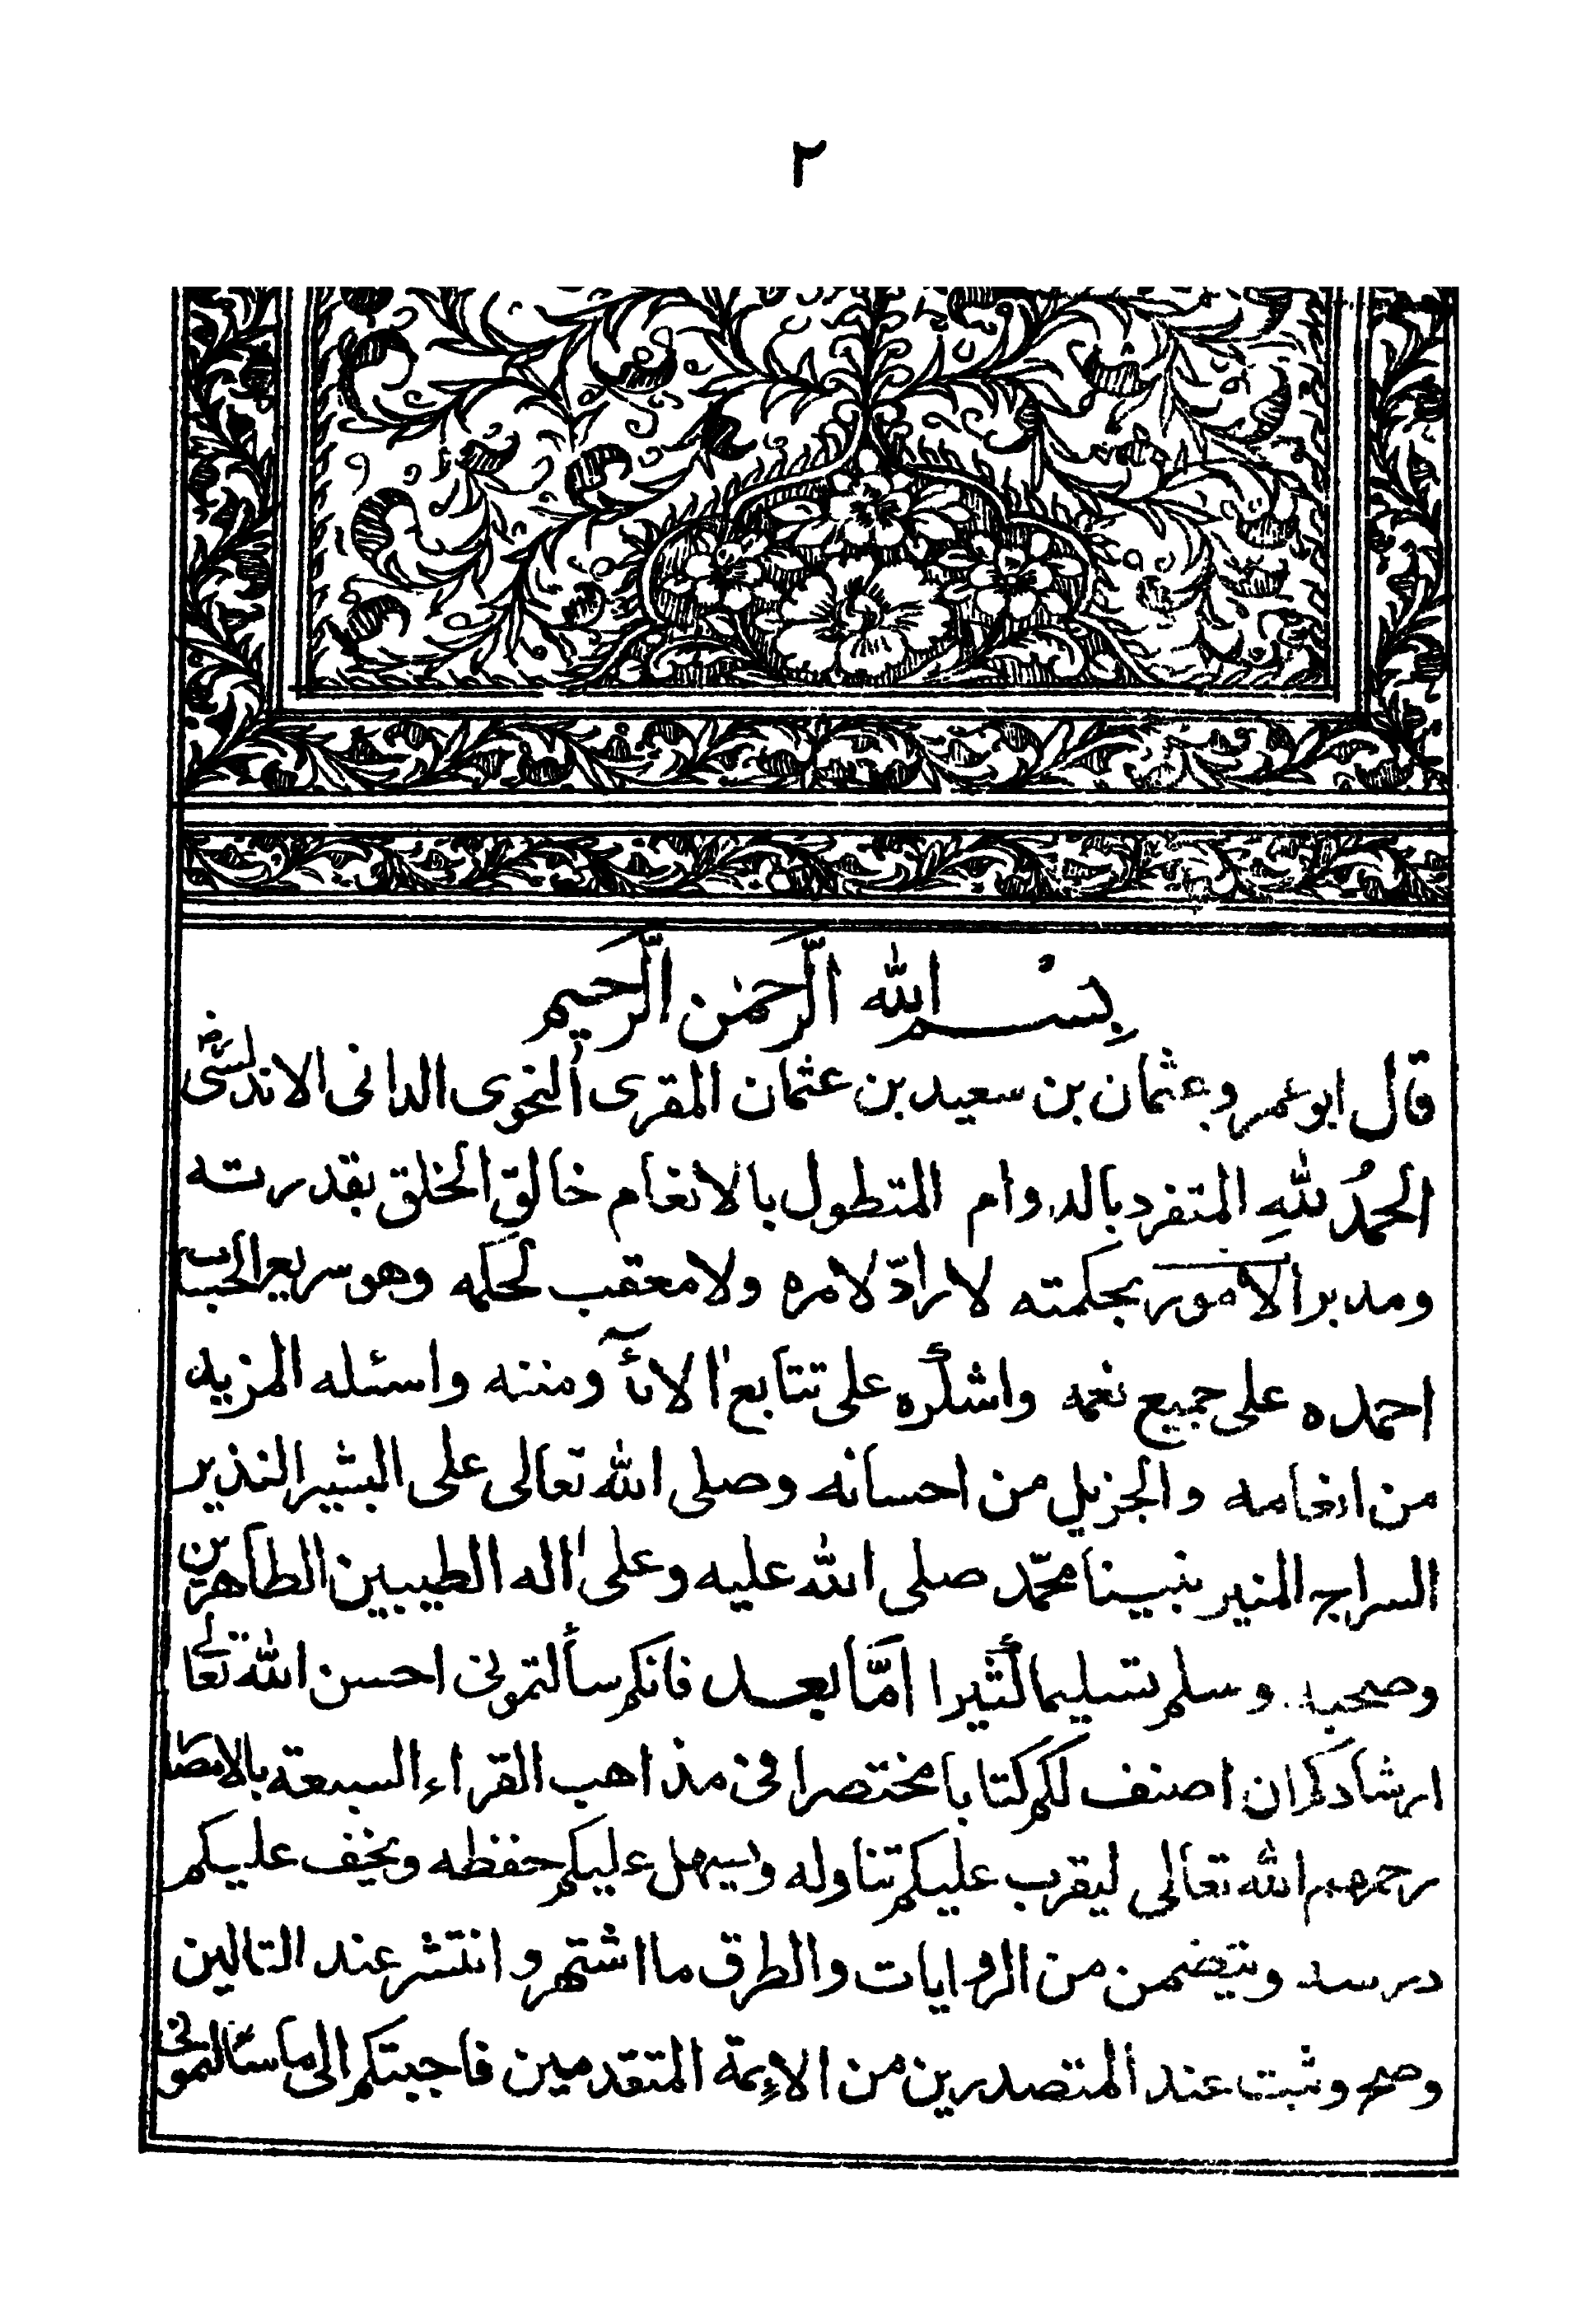 ٢
بِسْمِ الله الرَّحمٰن الرَّحيم
قال ابو عمرو عثمان بن سعيد بن عثمان المقرى النحوى الدانى الاندلسى رض
الحمدُ للهِ المتفرد بالدوام المتطول بالانعام خالق الخلق بقدرته
ومدبر الامور بحكمته لا رادّ لامره ولا معقب لحكمه وهو سريع الحساب
احمده على جميع نعمه واشكره على تتابع الآئه ومننه واسئله المزيد
من انعامه والجزيل من احسانه وصلى الله تعالى على البشير النذير
السراج المنير نبينا محمّد صلى الله عليه وعلى اله الطيبين الطاهرين
وصحبه وسلم تسليما كثيرا امّا بعد فانكم سألتمونى احسن الله تعالى
ارشادكم ان اصنف لكم كتابا مختصرا فى مذاهب القراء السبعة بالامصار
رحمهم الله تعالى ليقرب عليكم تناوله ويسهل عليكم حفظه ويخف عليكم
درسه ويتضمن من الروايات والطرق ما اشتهر وانتشر عند التالين
وصح وثبت عند المتصدرين من الائمة المتقدمين فاجبتكم الى ما سألتمونى